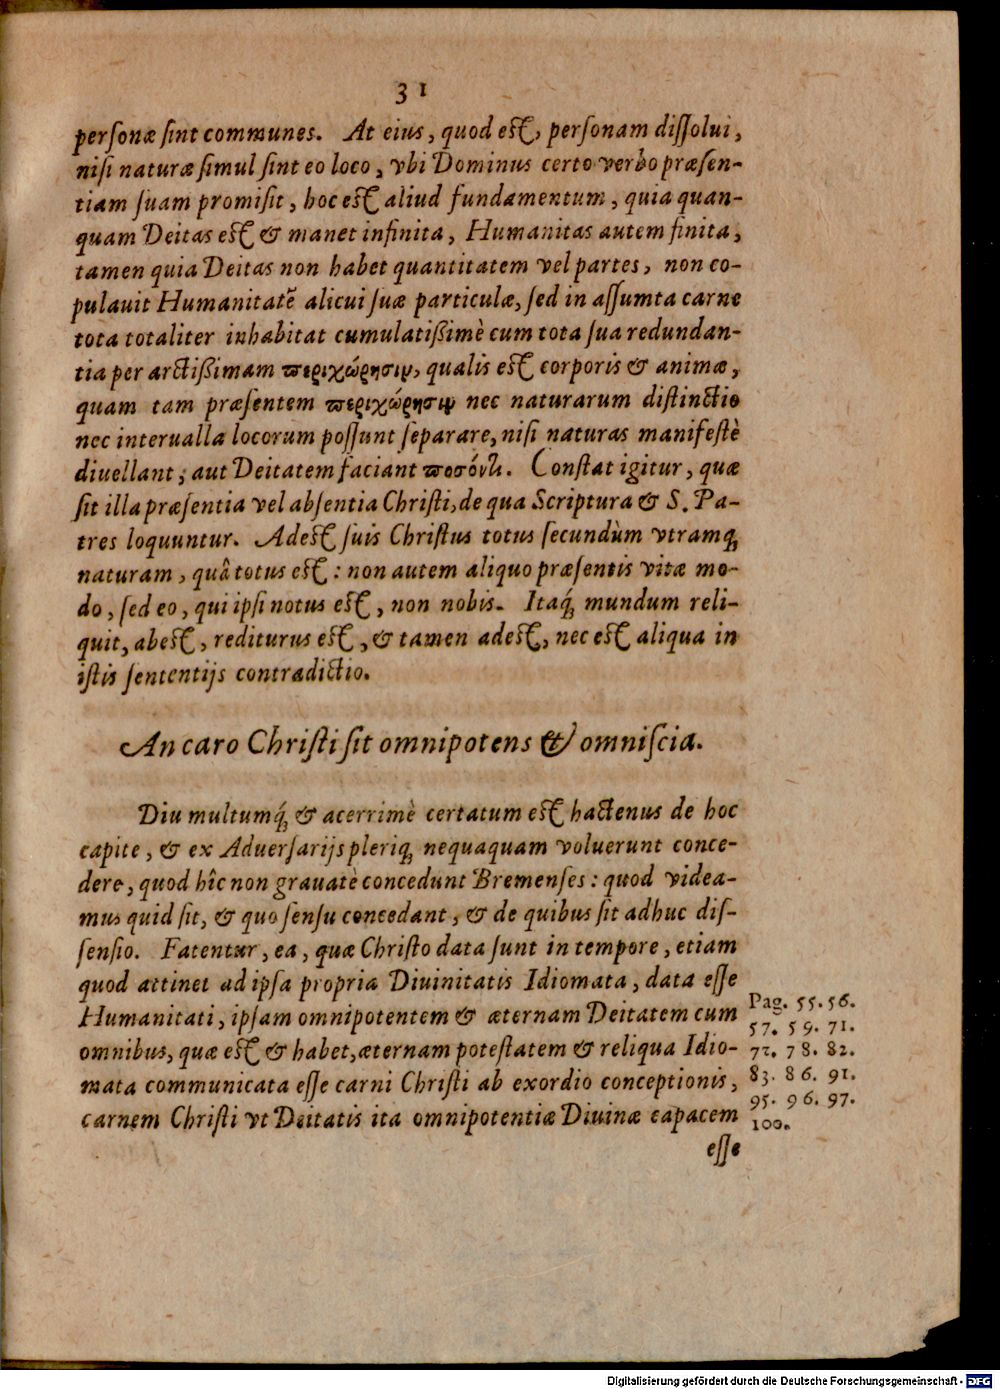 31
personæ ſint communes. At eius, quod eſt, perſonam diſſolui,
niſi naturæ ſimul ſint eo loco, vbi Dominus certo verbo præſen-
tiam ſuam promiſit, hoc eſt aliud fundamentum, quia quan-
quam Deitas eſt & manet infinita, Humanitas autem finita,
tamen quia Deitas non habet quantitatem vel partes, non co-
pulauit Humanitatē alicui ſuæ particulæ, ſed in aſſumta carne
tota totaliter inhabitat cumulatißimè cum tota ſua redundan-
tia per arctißimam περιχώρησιν, qualis eſt corporis & animæ,
quam tam præſentem περιχώρησιν nec naturarum diſtinctio
nec interualla locorum poſſunt ſeparare, niſi naturas manifeſtè
diuellant; aut Deitatem faciant ποσόντι. Conſtat igitur, quæ
ſit illa præſentia vel abſentia Chriſti, de qua Scriptura & S. Pa-
tres loquuntur. Adeſt ſuis Chriſtus totus ſecundùm vtramq́;
naturam, quâ totus eſt: non autem aliquo præſentis vitæ mo-
do, ſed eo, qui ipſi notus eſt, non nobis. Itaq́; mundum reli-
quit, abeſt, rediturus eſt, & tamen adeſt, nec eſt aliqua in
iſtis ſententijs contradictio.
An caro Chriſti ſit omnipotens & omniſcia.
Diu multumq́; & acerrimè certatum eſt hactenus de hoc
capite, & ex Aduerſarijs pleriq; nequaquam voluerunt conce-
dere, quod hîc non grauatè concedunt Bremenſes: quod videa-
mus quid ſit, & quo ſenſu concedant, & de quibus ſit adhuc diſ-
ſenſio. Fatentur, ea, quæ Chriſto data ſunt in tempore, etiam
quod attinet ad ipſa propria Diuinitatis Idiomata, data eſſe
Humanitati, ipſam omnipotentem & æternam Deitatem cum
omnibus, quæ eſt & habet, æternam poteſtatem & reliqua Idio-
mata communicata eſſe carni Chriſti ab exordio conceptionis,
carnem Chriſti vt Deitatis ita omnipotentiæ Diuinæ capacem
eſſe
Pag. 55. 56.
57. 59. 71.
77. 78. 82.
83. 86. 91.
95. 96. 97.
100.
Digitalisierung gefördert durch die Deutsche Forschungsgemeinschaft - DFG